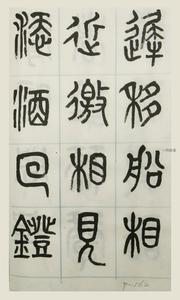 遲移船相
近邀相見
添酒回鐙